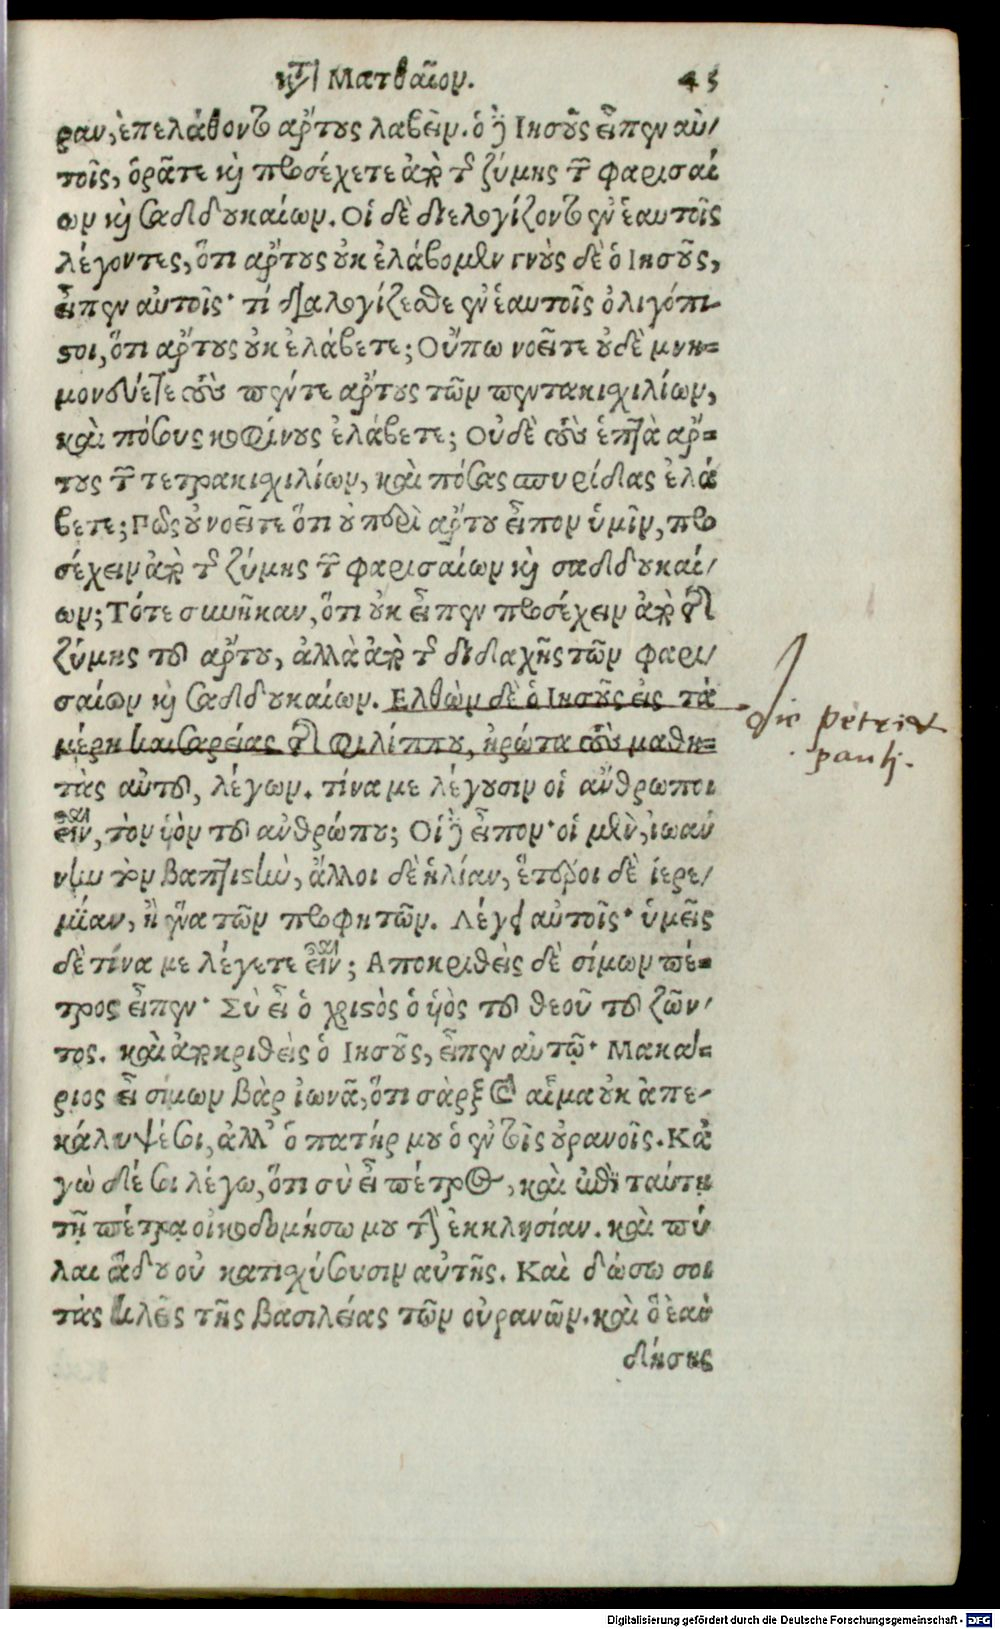 κτ Ματθαῖον. 45
ραν, ἐπελάθοντο ἄρτους λαβεῖν. ὁ δὲ Ιησοῦς εἶπεν αὐ/
τοῖς, ὁρᾶτε καὶ προσέχετε ἀπὸ τῆς ζύμης τῶν φαρισαί
ων καὶ σαδδουκαίων. Οἱ δὲ διελογίζοντο ἐν ἑαυτοῖς
λέγοντες, ὅτι ἄρτους οὐκ ἐλάβομεν γνοὺς δὲ ὁ Ιησοῦς,
εἶπεν αὐτοῖς· τί διαλογίζεσθε ἐν ἑαυτοῖς ὀλιγόπι-
στοι, ὅτι ἄρτους οὐκ ἐλάβετε; Οὔπω νοεῖτε οὐδὲ μνη=
μονεύετε τοὺς πέντε ἄρτους τῶν πεντακιχιλίων,
καὶ πόσους κοφίνους ἐλάβετε; Οὐδὲ τοὺς ἑπτὰ ἄρ=
τους τῶν τετρακιχιλίων, καὶ πόσας σπυρίδας ἐλά
βετε; Πῶς οὐ νοεῖτε ὅτι οὐ περὶ ἄρτου εἶπον ὑμῖν, προ
σέχειν ἀπὸ τῆς ζύμης τῶν φαρισαίων καὶ σαδδουκαί/
ων; Τότε συνῆκαν, ὅτι οὐκ εἶπεν προσέχειν ἀπὸ τῆς
ζύμης τοῦ ἄρτου, ἀλλὰ ἀπὸ τῆς διδαχῆς τῶν φαρι/
σαίων καὶ σαδδουκαίων. Ελθὼν δὲ ὁ Ιησοῦς εἰς τὰ
μέρη καισαρείας τῆς Φιλίππου, ἠρώτα τοὺς μαθη=
τὰς αὐτοῦ, λέγων. τίνα με λέγουσιν οἱ ἄνθρωποι
εἶναι, τὸν υἱὸν τοῦ ἀνθρώπου; Οἱ δὲ εἶπον· οἱ μὲν, ἰωάν
νην τὸν βαπτιστὴν, ἄλλοι δὲ ἡλίαν, ἕτεροι δὲ ἱερε/
μίαν, ἢ ἕνα τῶν προφητῶν. Λέγει αὐτοῖς· ὑμεῖς
δὲ τίνα με λέγετε εἶναι; Αποκριθεὶς δὲ σίμων πέ=
τρος εἶπεν· Σὺ εἶ ὁ χριστὸς ὁ υἱὸς τοῦ θεοῦ τοῦ ζῶν/
τος. καὶ ἀποκριθεὶς ὁ Ιησοῦς, εἶπεν αὐτῷ· Μακά=
ριος εἶ σίμων βὰρ ἰωνᾶ, ὅτι σὰρξ καὶ αἷμα οὐκ ἀπε-
κάλυψέ σοι, ἀλλ' ὁ πατήρ μου ὁ ἐν τοῖς οὐρανοῖς. Κἀ
γὼ δέ σοι λέγω, ὅτι σὺ εἶ πέτρος, καὶ ἐπὶ ταύτῃ
τῇ πέτρᾳ οἰκοδομήσω μου τὴν ἐκκλησίαν. καὶ πύ
λαι ᾅδου οὐ κατιχύσουσιν αὐτῆς. Καὶ δώσω σοι
τὰς κλεῖς τῆς βασιλείας τῶν οὐρανῶν. καὶ ὃ ἐὰν
δήσῃς
die petri et
pauli.
Digitalisierung gefördert durch die Deutsche Forschungsgemeinschaft - DFG